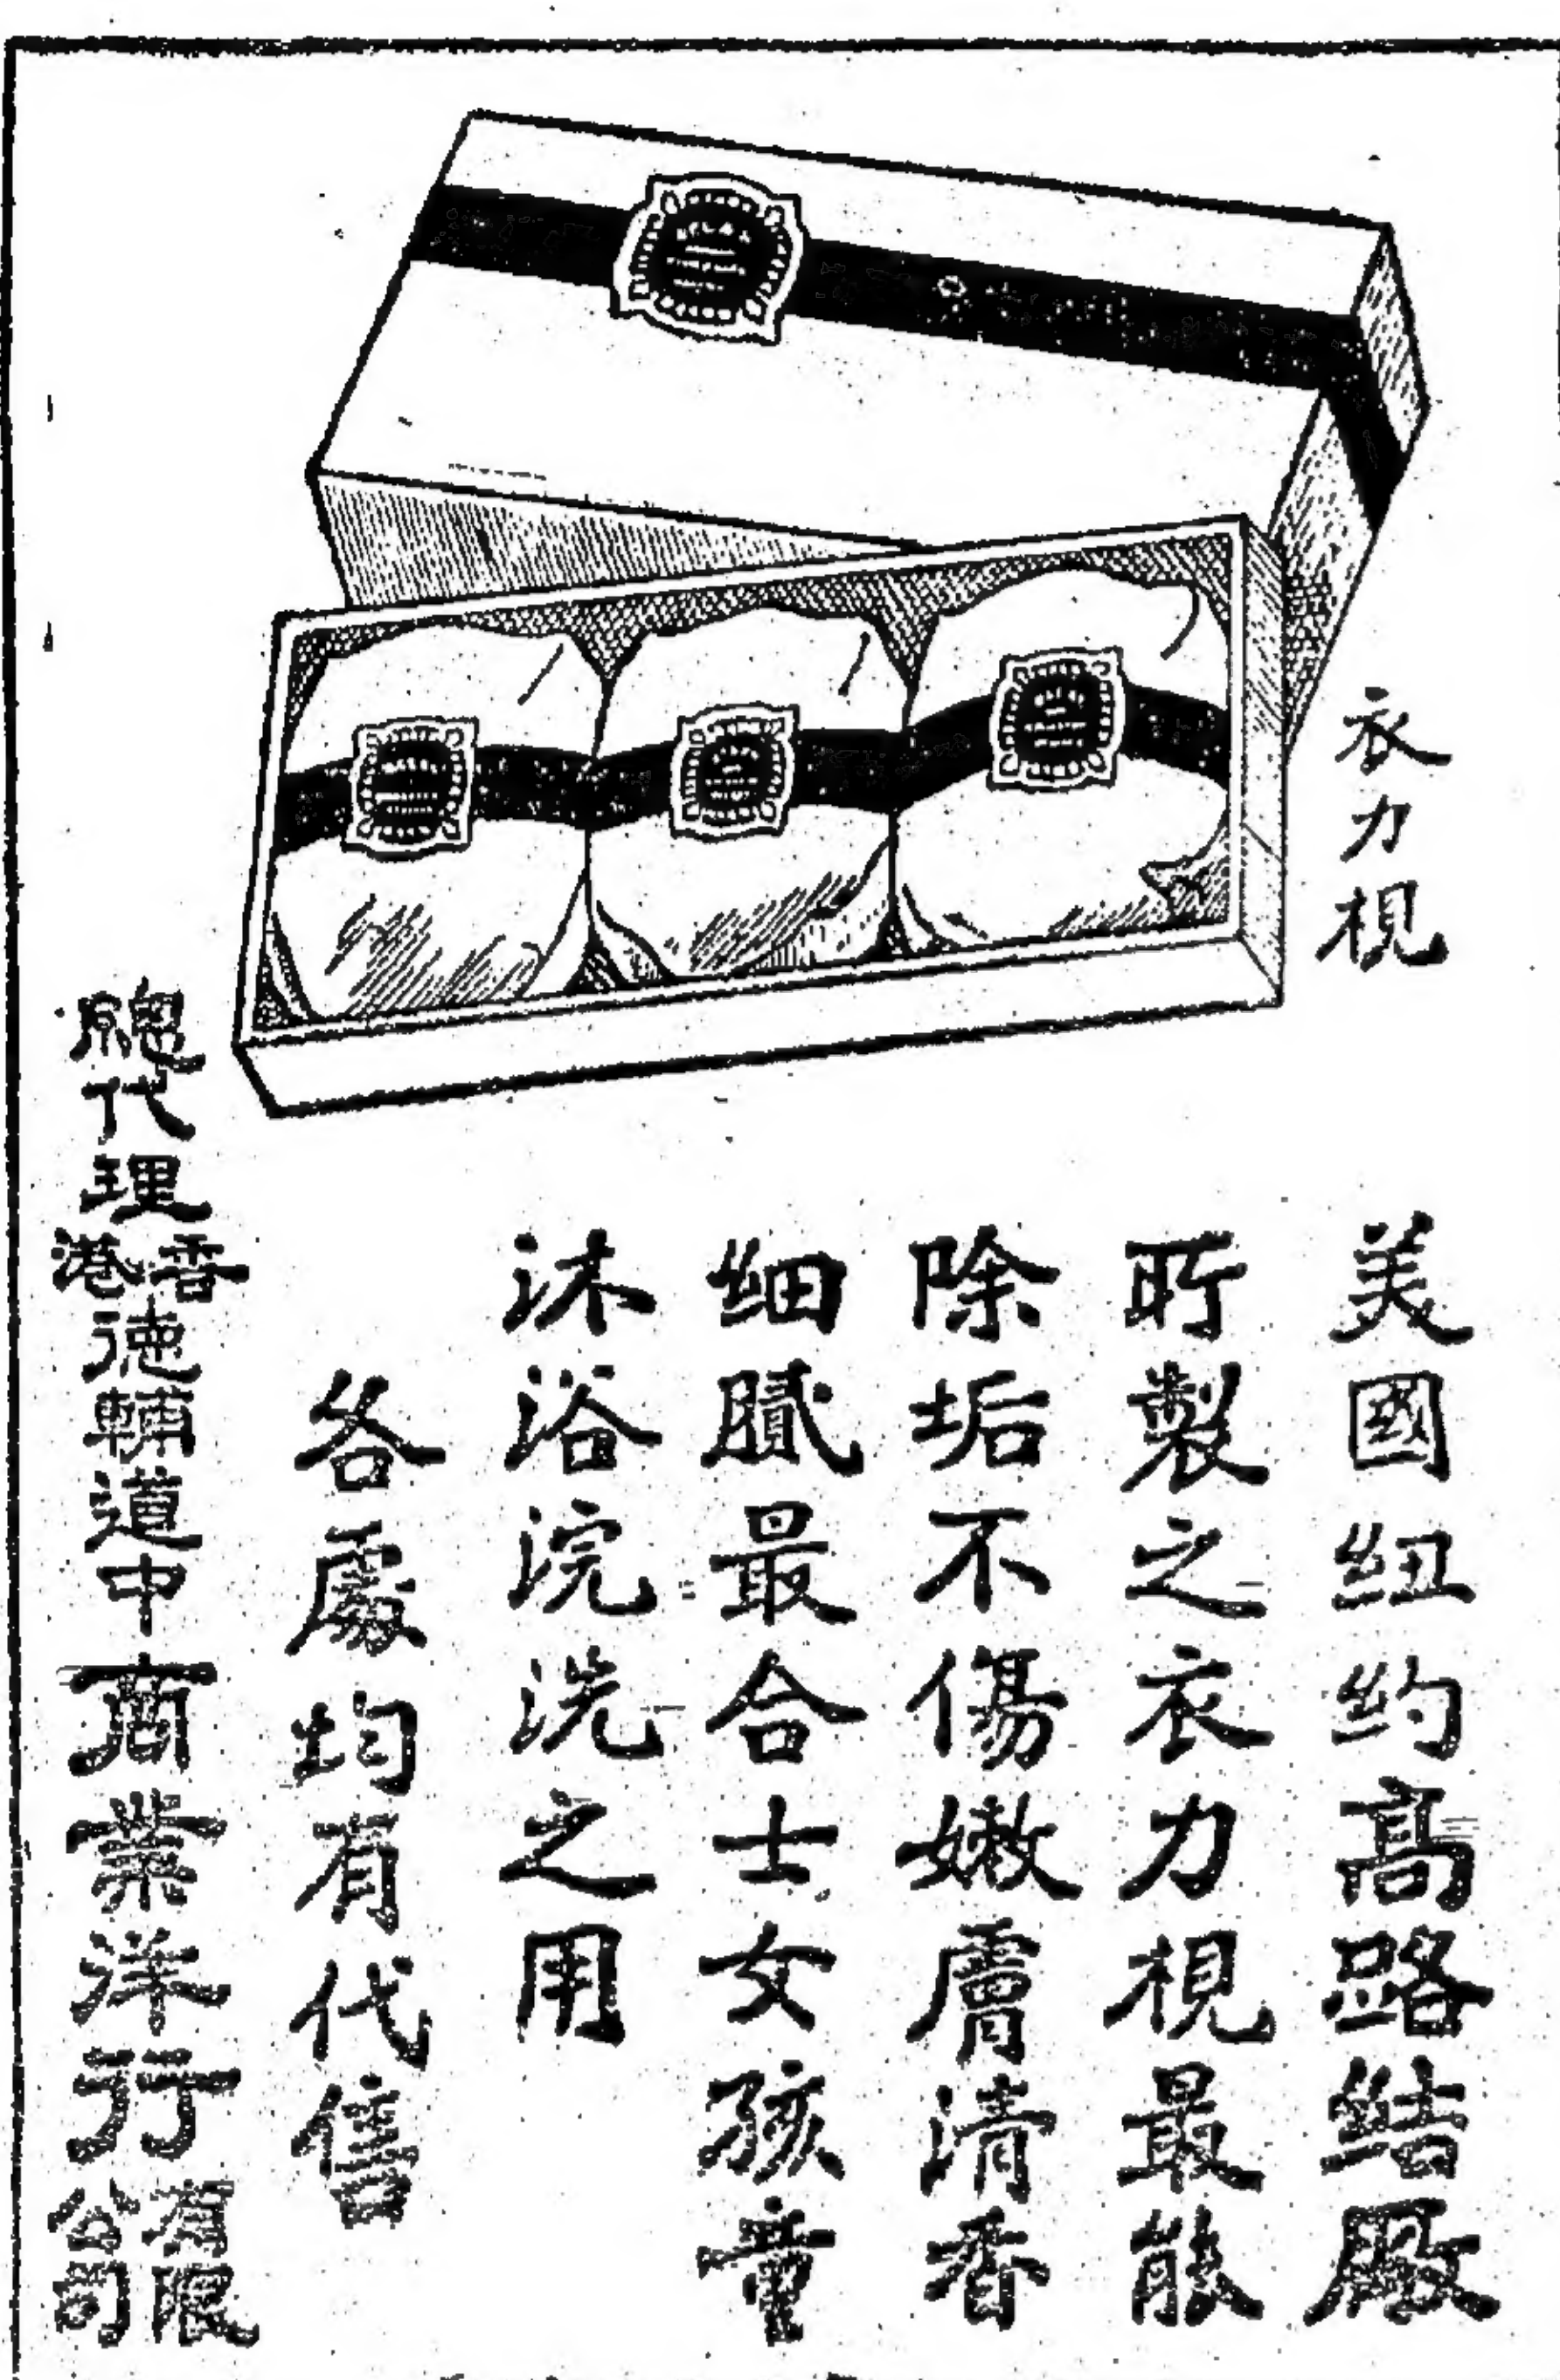 衣力視
美國紐约高路结厰
所製之衣力視最能
除垢不傷嫩膚清香
细膩最合士女孩童
沐浴浣洗之用
各處均有代售
總代理香港德輔道中商業洋行有限公司